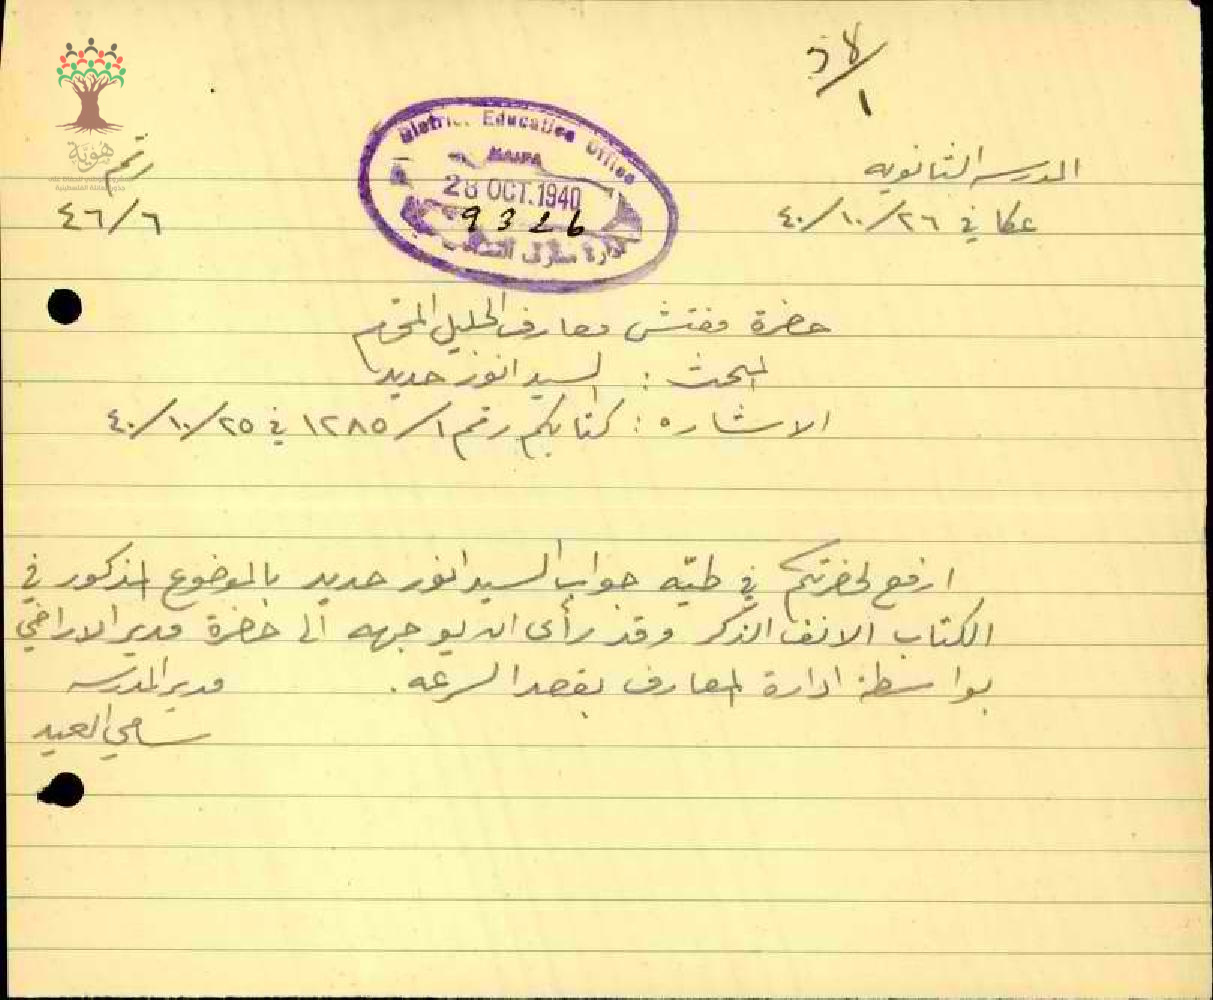 المدرسه الثانويه
عكا في ٢٦/١٠/٤٠
رقم
٤٦/٦
هوية
District Education Office
HAIFA
28 OCT. 1940
9326
ادارة معارف
حضرة مفتش معارف الجليل المحترم
المبحث : السيد انور حديد
الاشاره : كتابكم رقم ١/١٢٨٥ في ٢٥/١٠/٤٠
ارفع لحضرتكم في طيّه جواب السيد انور حديد بالموضوع المذكور في
الكتاب الانف الذكر وقد رأى ان يوجهه الى حضرة مدير الاراضي
بواسطة ادارة المعارف بقصد السرعه.
مدير المدرسه
سامي العيد